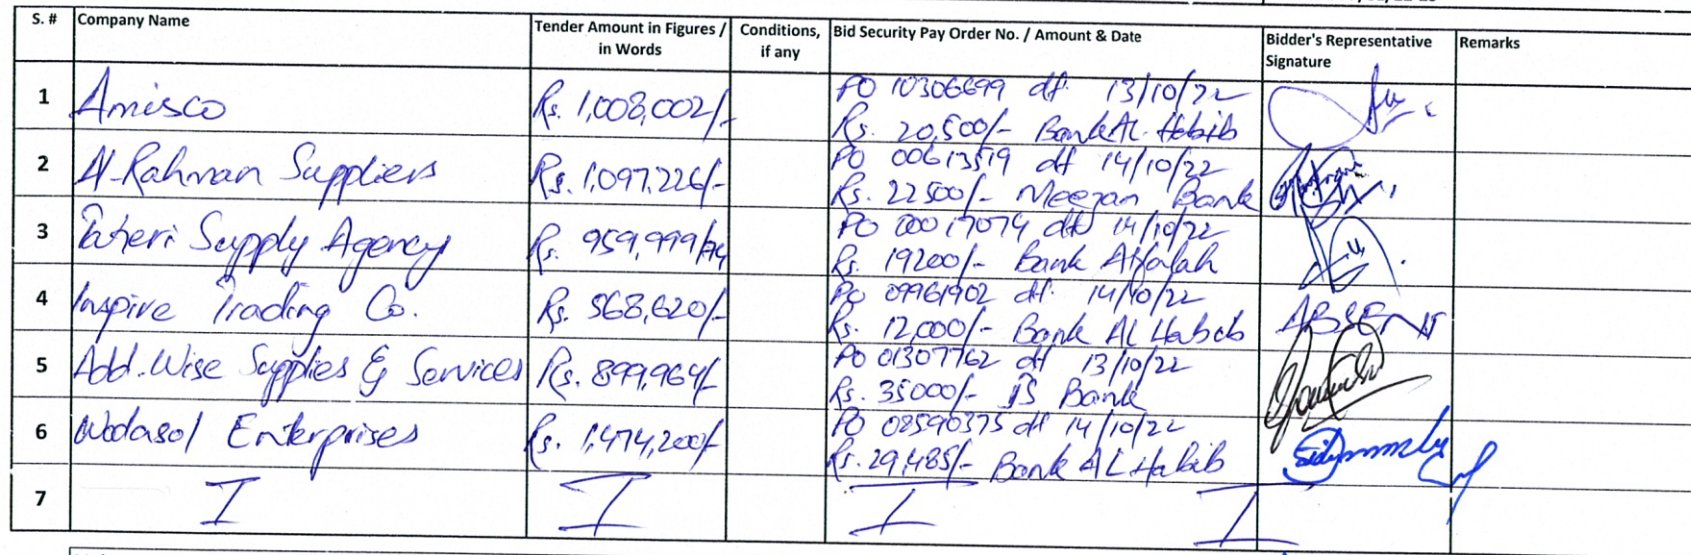 S. # Company Name Tender Amount in Figures / in Words Conditions, if any Bid Security Pay Order No. / Amount & Date Bidder's Representative Signature Remarks
1 Amisco Rs. 1,008,002/- PO 10306699 dt. 13/10/22
Rs. 20,500/- Bank AL-Habib
2 Al-Rahman Suppliers Rs. 1,097,226/- PO 00613519 dt 14/10/22
Rs. 22500/- Meezan Bank
3 Taheri Supply Agency Rs. 959,999/ PO 00017074 dt 14/10/22
Rs. 19200/- Bank Alfalah
4 Inspire Trading Co. Rs. 568,620/- PO 09961902 dt. 14/10/22
Rs. 12,000/- Bank AL Habib ABSENT
5 Add-Wise Supplies & Services Rs. 899,964/- PO 01307762 dt 13/10/22
Rs. 35000/- JS Bank
6 Wodasol Enterprises Rs. 1,474,200/- PO 08590375 dt 14/10/22
Rs. 29,485/- Bank AL Habib
7